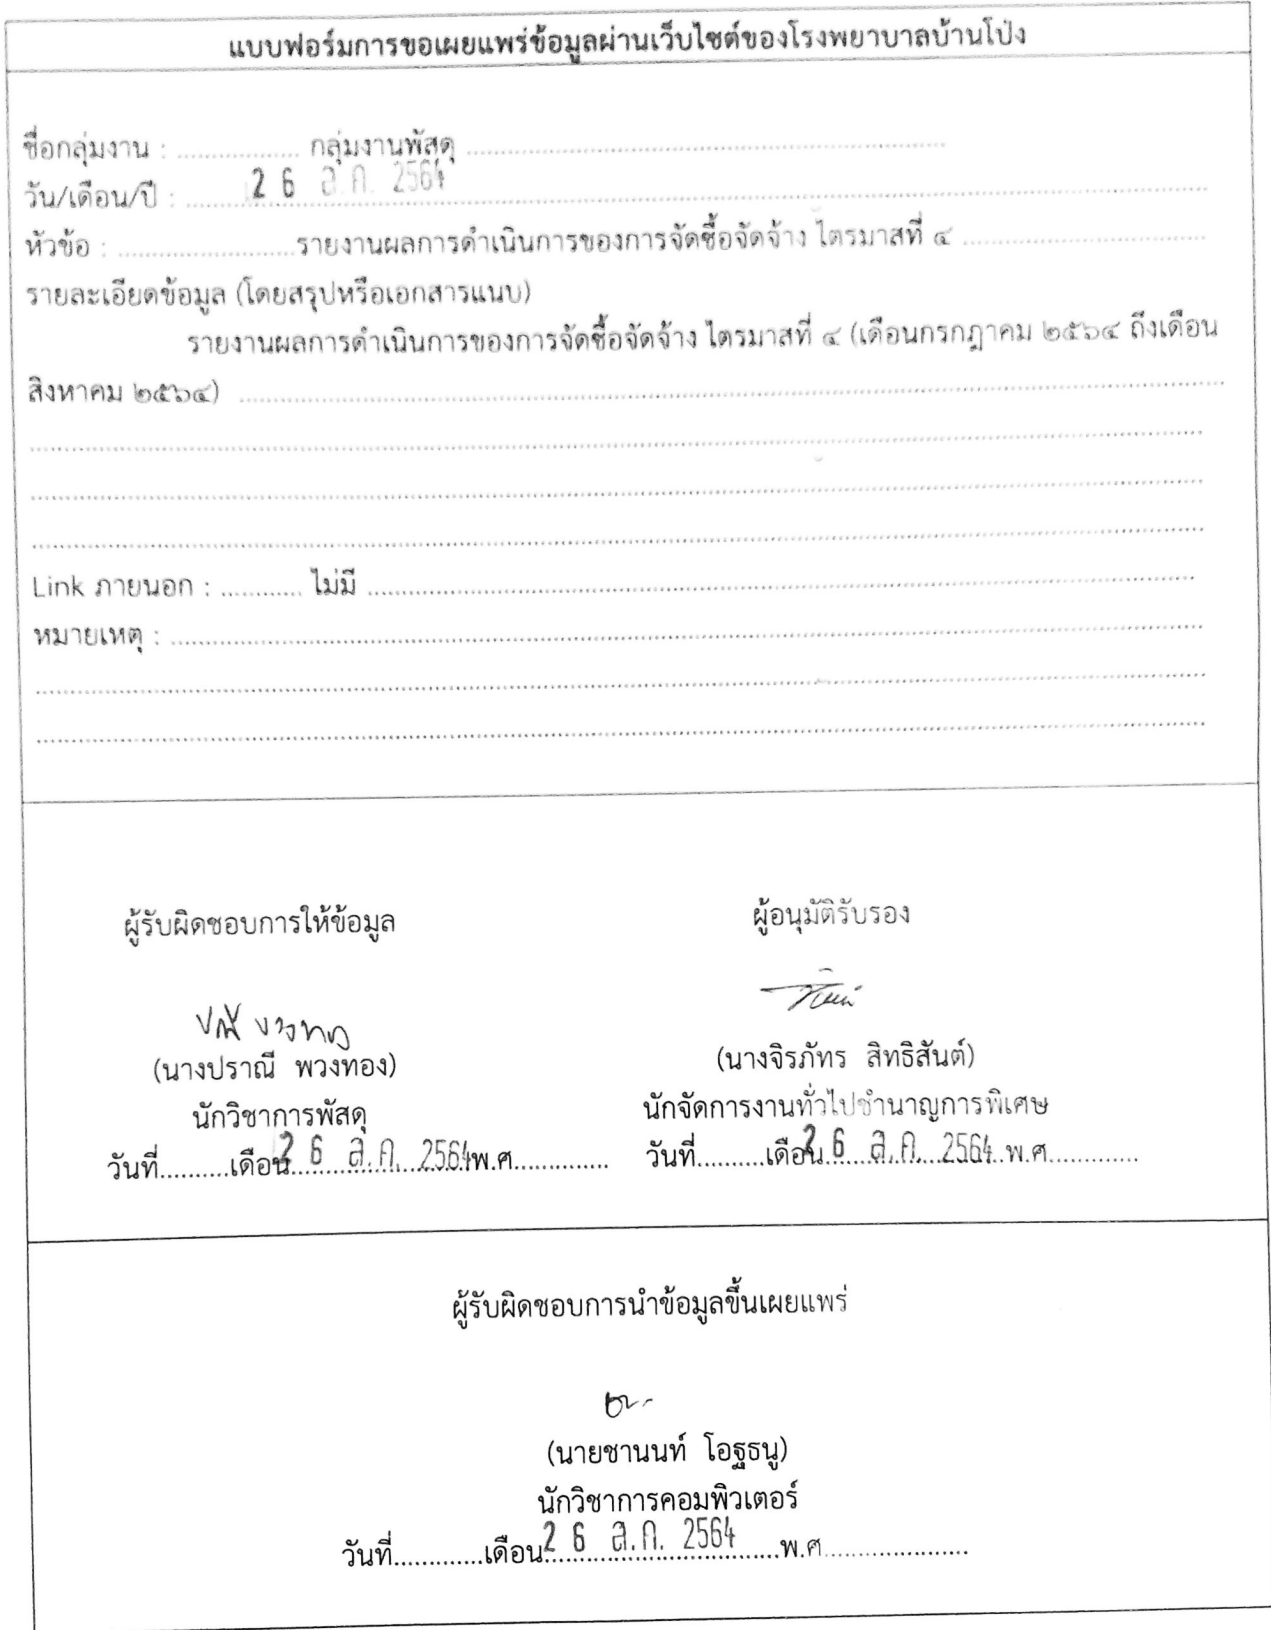 แบบฟอร์มการขอเผยแพร่ข้อมูลผ่านเว็บไซต์ของโรงพยาบาลบ้านโป่ง
ชื่อกลุ่มงาน : .................. กลุ่มงานพัสดุ ..................
วัน/เดือน/ปี : ......... 26 ส.ค. 2564 .........
หัวข้อ : ..........................รายงานผลการดำเนินการของการจัดซื้อจัดจ้าง ไตรมาสที่ ๔ ..................
รายละเอียดข้อมูล (โดยสรุปหรือเอกสารแนบ)
รายงานผลการดำเนินการของการจัดซื้อจัดจ้าง ไตรมาสที่ ๔ (เดือนกรกฎาคม ๒๕๖๔ ถึงเดือน
สิงหาคม ๒๕๖๔) ..................
Link ภายนอก : ............ ไม่มี ..................
หมายเหตุ : ..................
ผู้รับผิดชอบการให้ข้อมูล
ปราณี พวงทอง
(นางปราณี พวงทอง)
นักวิชาการพัสดุ
วันที่..........เดือน 26 ส.ค. 2564 พ.ศ..............
ผู้อนุมัติรับรอง
(นางจิรภัทร สิทธิสันต์)
นักจัดการงานทั่วไปชำนาญการพิเศษ
วันที่..........เดือน 26 ส.ค. 2564 พ.ศ.............
ผู้รับผิดชอบการนำข้อมูลขึ้นเผยแพร่
(นายชานนท์ โอฐธนู)
นักวิชาการคอมพิวเตอร์
วันที่.............เดือน 26 ส.ค. 2564 พ.ศ.....................